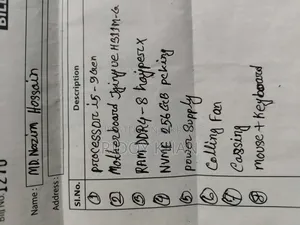 Bill No. 1270
Name : MD. Nazim Hossain
Address :
Sl.No. Description
① processor i5-9Gen
② Motherboard H311M-G
③ RAM DDR4-8 hajperx
④ NVME 256GB pcking
⑤ power supply
⑥ Colling Fan
⑦ Cassing
⑧ Mouse + Keyboard